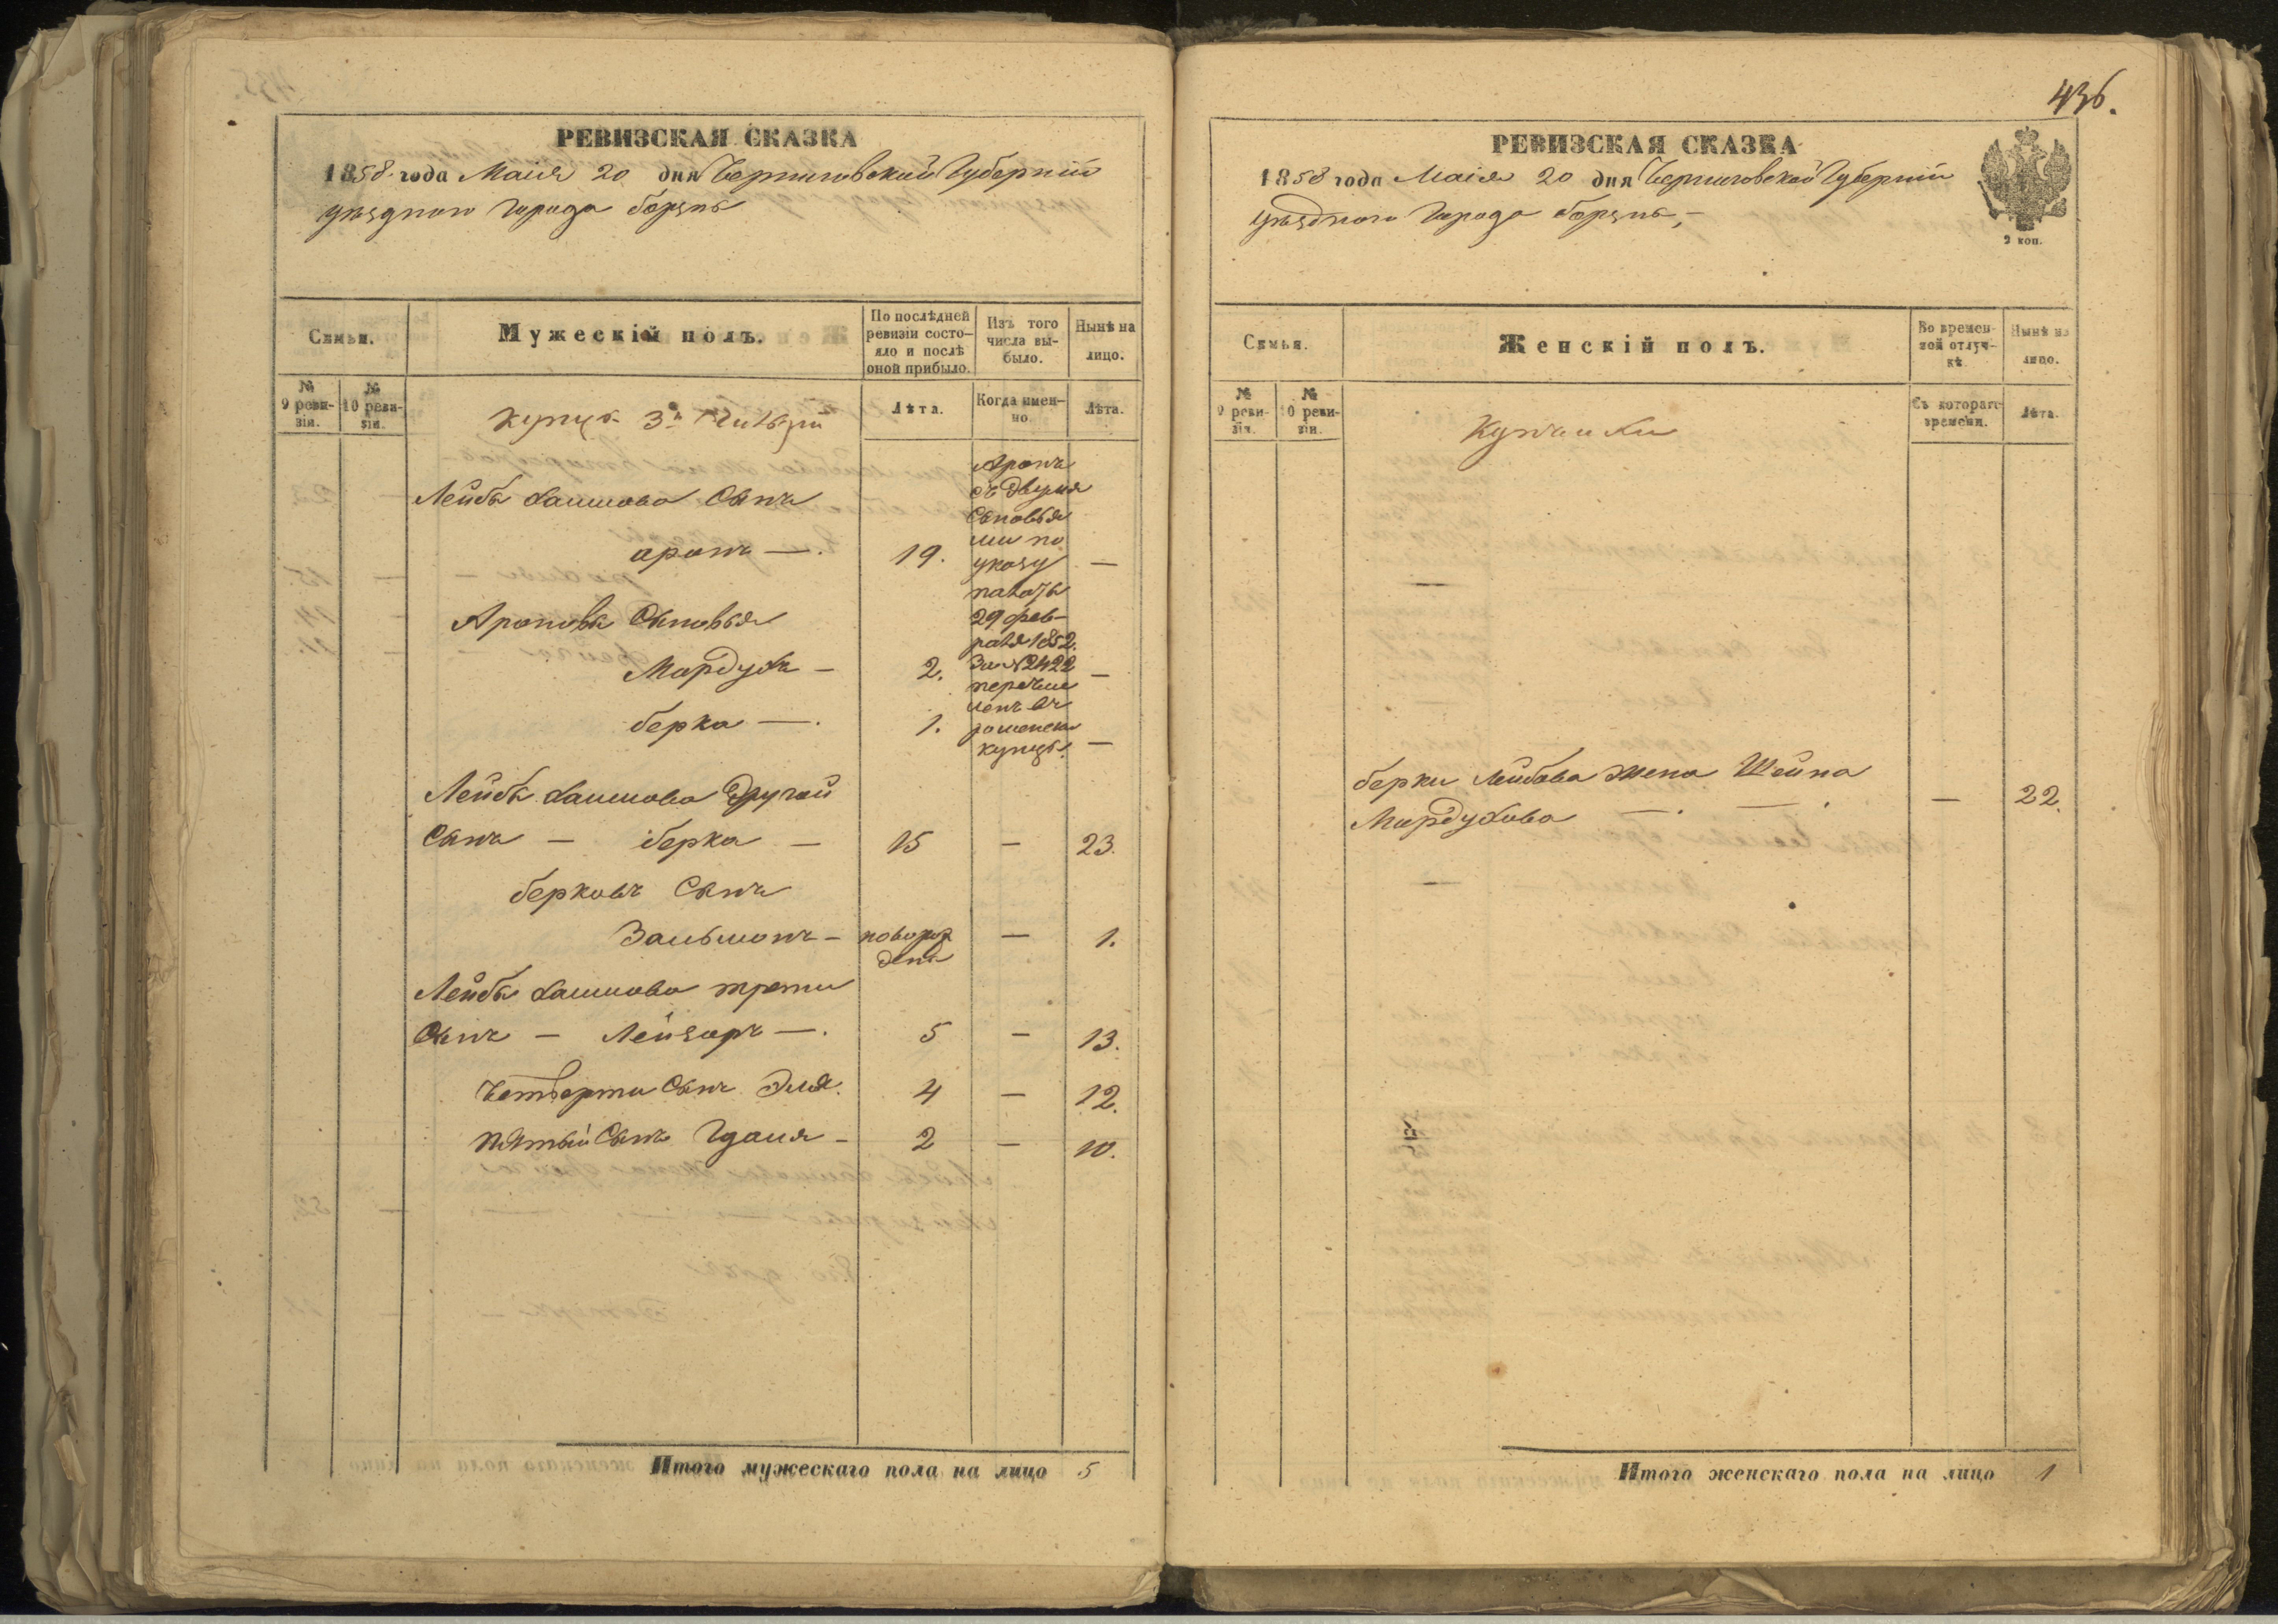 РЕВИЗСКАЯ СКАЗКА
1858 года Маія 20 дня Черниговской Губерніи
уѣзднаго Города борзны
Семьи.
Мужескій полъ.
По послѣдней
ревизіи состо-
яло и послѣ
оной прибыло.
Изъ того
числа вы-
было.
Нынѣ на
лицо.
№
9 реви-
зіи.
№
10 реви-
зіи.
купцы 3й Гильдіи
Лѣта.
Когда имен-
но
Лѣта.
Лейбы Хаимова Сынъ
аронъ —. 19. —
Ароновы Сыновья
Мордухъ — 2. —
берка —. 1. —
Аронъ
съ двумя
Сыновья
ми по
указу
палаты
29 фев-
раля 1852.
За №2422
перечис
ленъ въ
роменски
купцы.
Лейбы Хаимова другой
Сынъ — берка — 15 — 23.
берковъ Сынъ
Зальмонъ — новорож — 1.
денъ
Лейбы Хаимова трети
Сынъ — Лейзаръ —. 5 — 13.
Четверти Сынъ Эля. 4 — 12.
пятый Сынъ Гдаля — 2 — 10.
Итого мужескаго пола на лицо 5
436.
РЕВИЗСКАЯ СКАЗКА
1858 года Маія 20 дня Черниговской Губерніи
уѣзднаго Города борзны, —
2 коп.
Семьи.
Женскій полъ.
Во времен-
ной отлуч-
кѣ.
Нынѣ на
лицо.
№
9 реви-
зіи.
№
10 реви-
зіи.
Купчихи
Съ котораго
времени.
Лѣта.
—
берки Лейбова жена Шейна
Мордухова —. —. — 22.
—
Итого женскаго пола на лицо 1